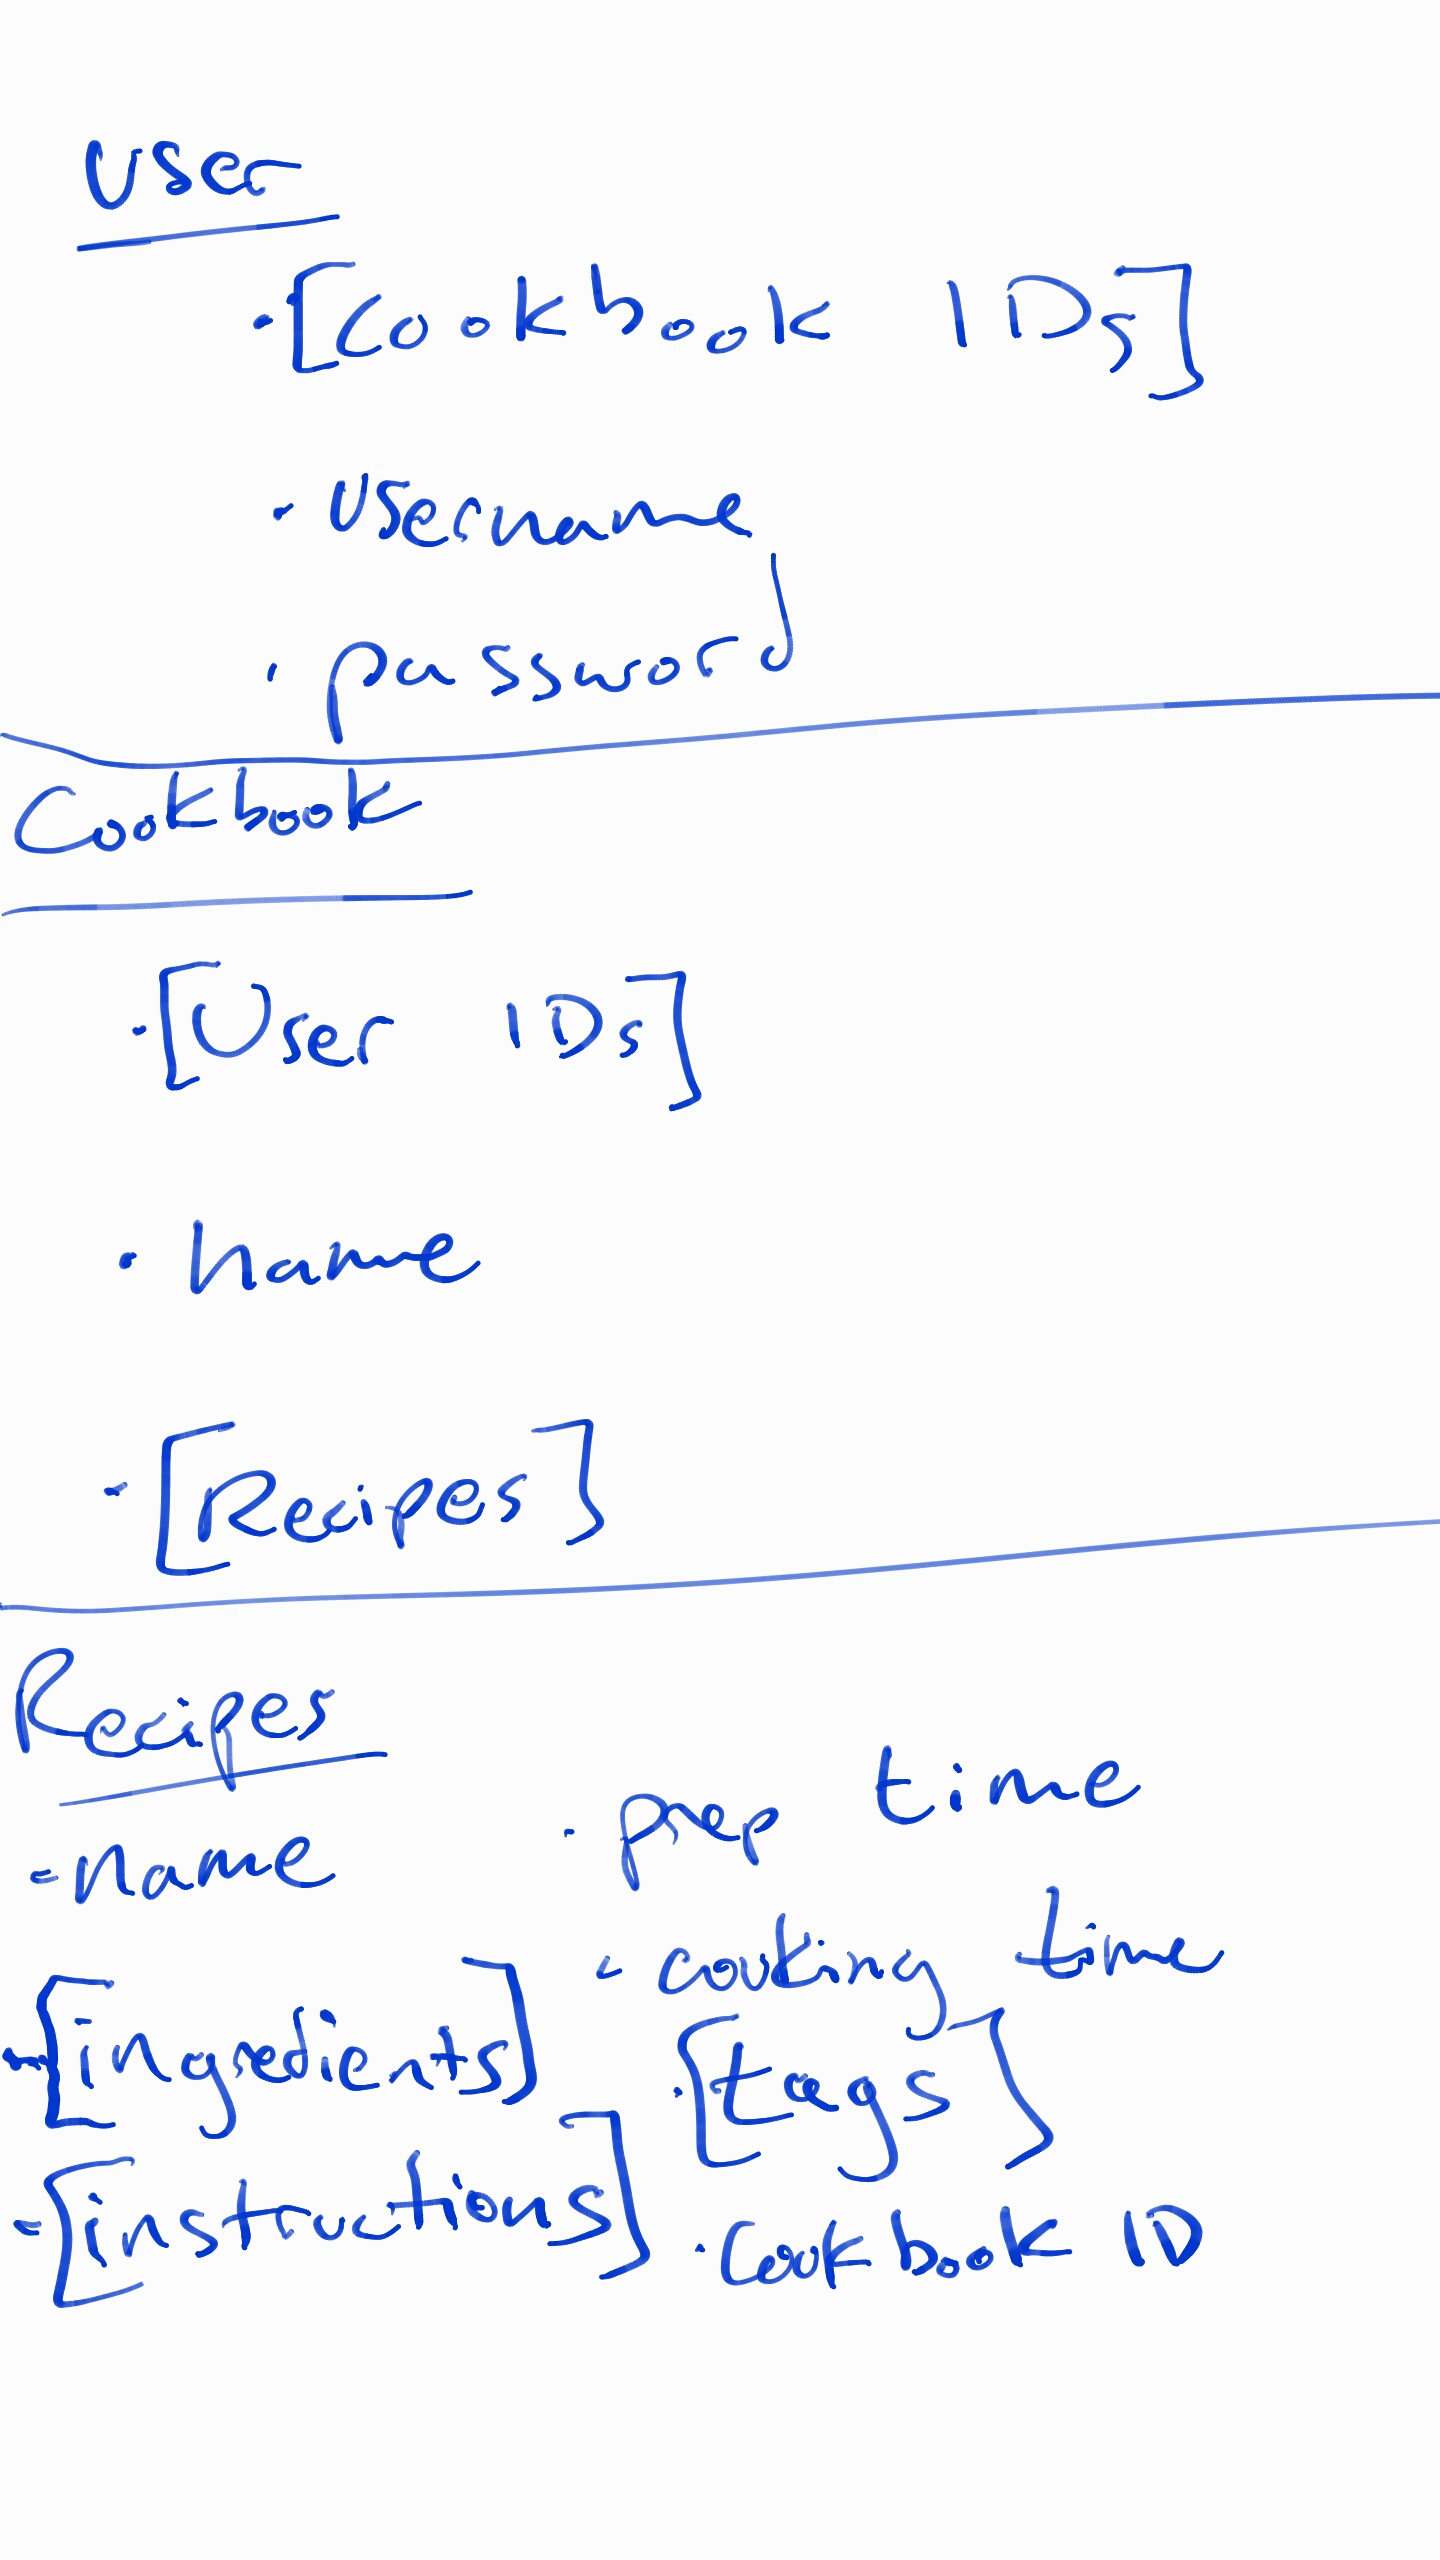 User
· [Cookbook IDs]
· Username
· password
Cookbook
· [User IDs]
· name
· [Recipes]
Recipes
- name
- [ingredients]
- [instructions]
· prep time
- cooking time
· [tags]
· Cookbook ID